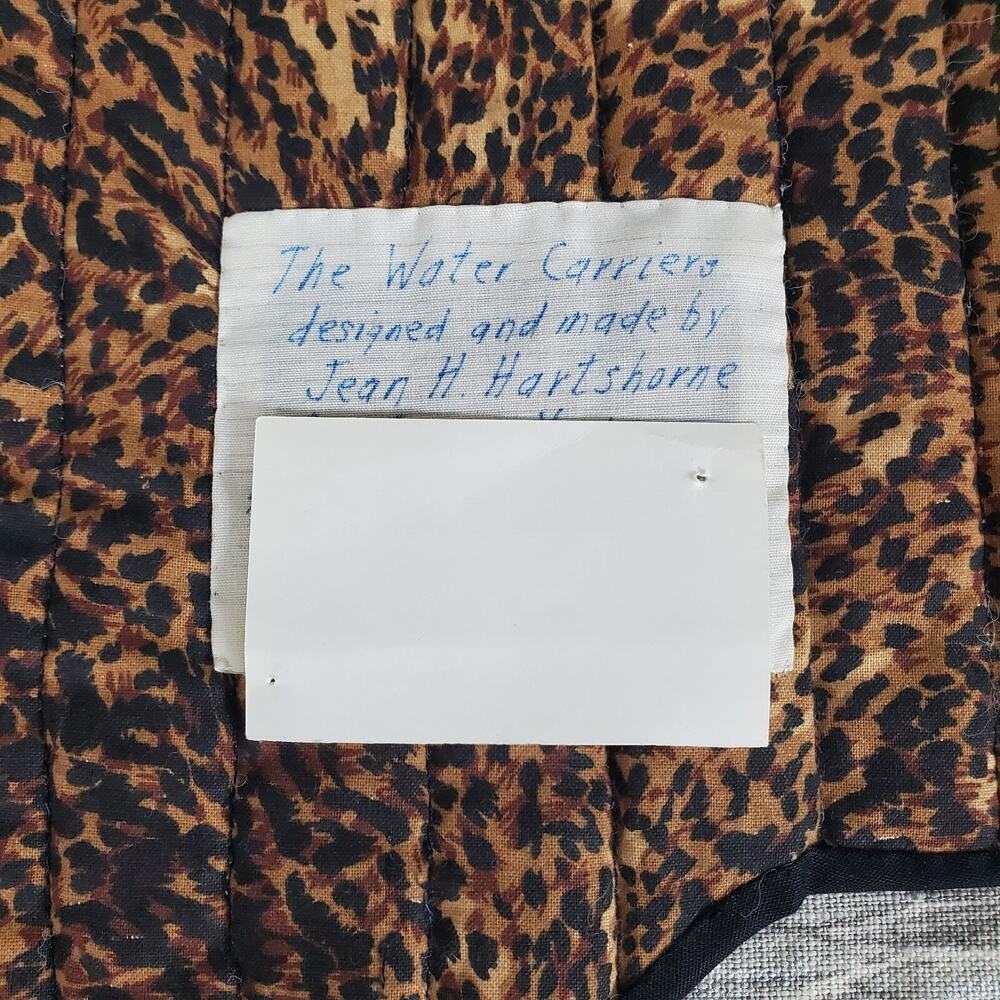 The Water Carriers
designed and made by
Jean H. Hartshorne